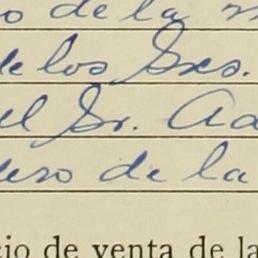 o de la m
de los Sres.
el Sr. Ad
ero de la
cio de venta de la